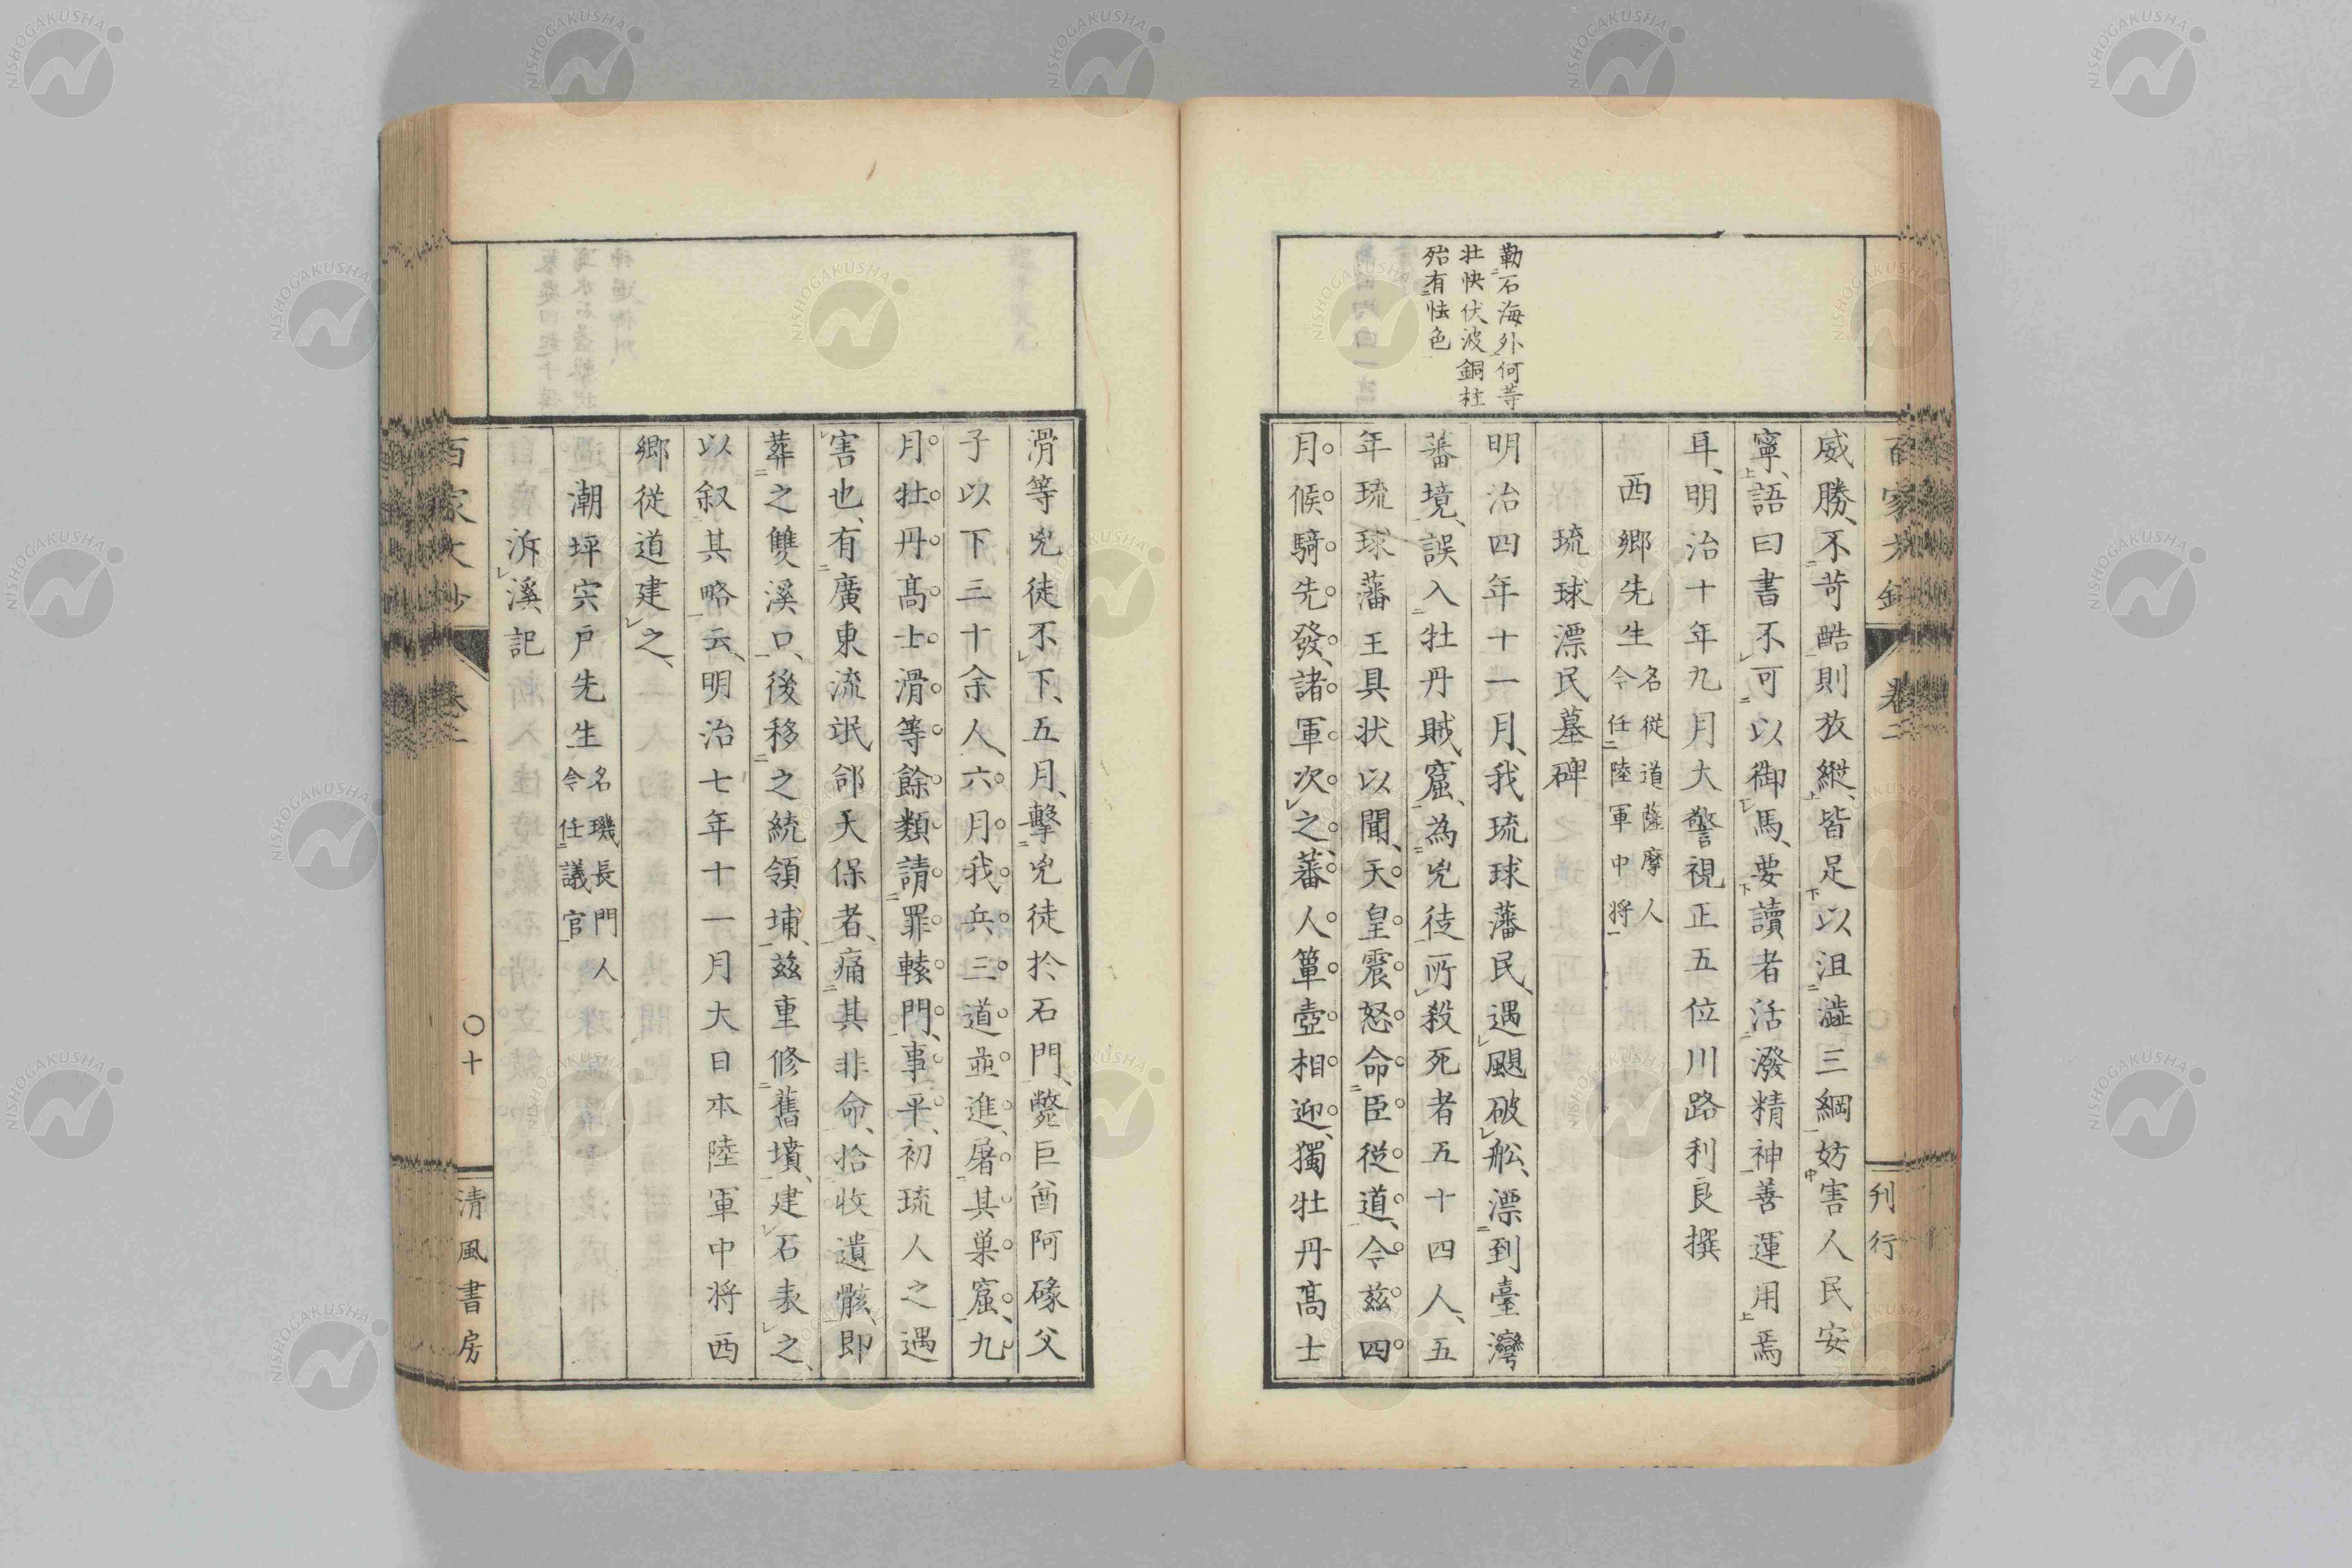 勒石海外何等
壮快伏波銅柱
殆有怯色
威勝、不苛酷則放縦、皆足以沮澁三綱妨害人民安
寧、語曰書不可以御馬、要讀者活潑精神善運用焉
耳、明治十年九月大警視正五位川路利良撰
西郷先生名従道薩摩人
今任陸軍中将
琉球漂民墓碑
明治四年十一月、我琉球藩民、遇颶破舩、漂到臺灣
蕃境、誤入牡丹賊窟、為兇徒所殺死者五十四人、五
年琉球藩王具状以聞、天皇震怒命臣従道、今茲四
月候騎先發、諸軍次之、蕃人簞壺相迎、獨牡丹髙士
刋行
滑等兇徒不下、五月、擊兇徒於石門、斃巨酋阿碌父
子以下三十余人、六月我兵三道並進、屠其巣窟、九
月牡丹髙士滑等餘類請罪轅門、事平、初琉人之遇
害也、有廣東流氓郤天保者、痛其非命、拾收遺骸、即
葬之雙溪口、後移之統領埔、茲重修舊墳、建石表之、
以叙其略云、明治七年十一月大日本陸軍中将西
郷従道建之、
潮坪宍戸先生名璣長門人
今任議官
泝溪記
百家文抄
巻二
〇十
清風書房